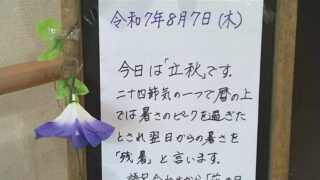 令和7年8月7日(木)
今日は「立秋」です。
二十四節気の一つで暦の上
では暑さのピークを過ぎた
とされ翌日からの暑さを
「残暑」と言います。